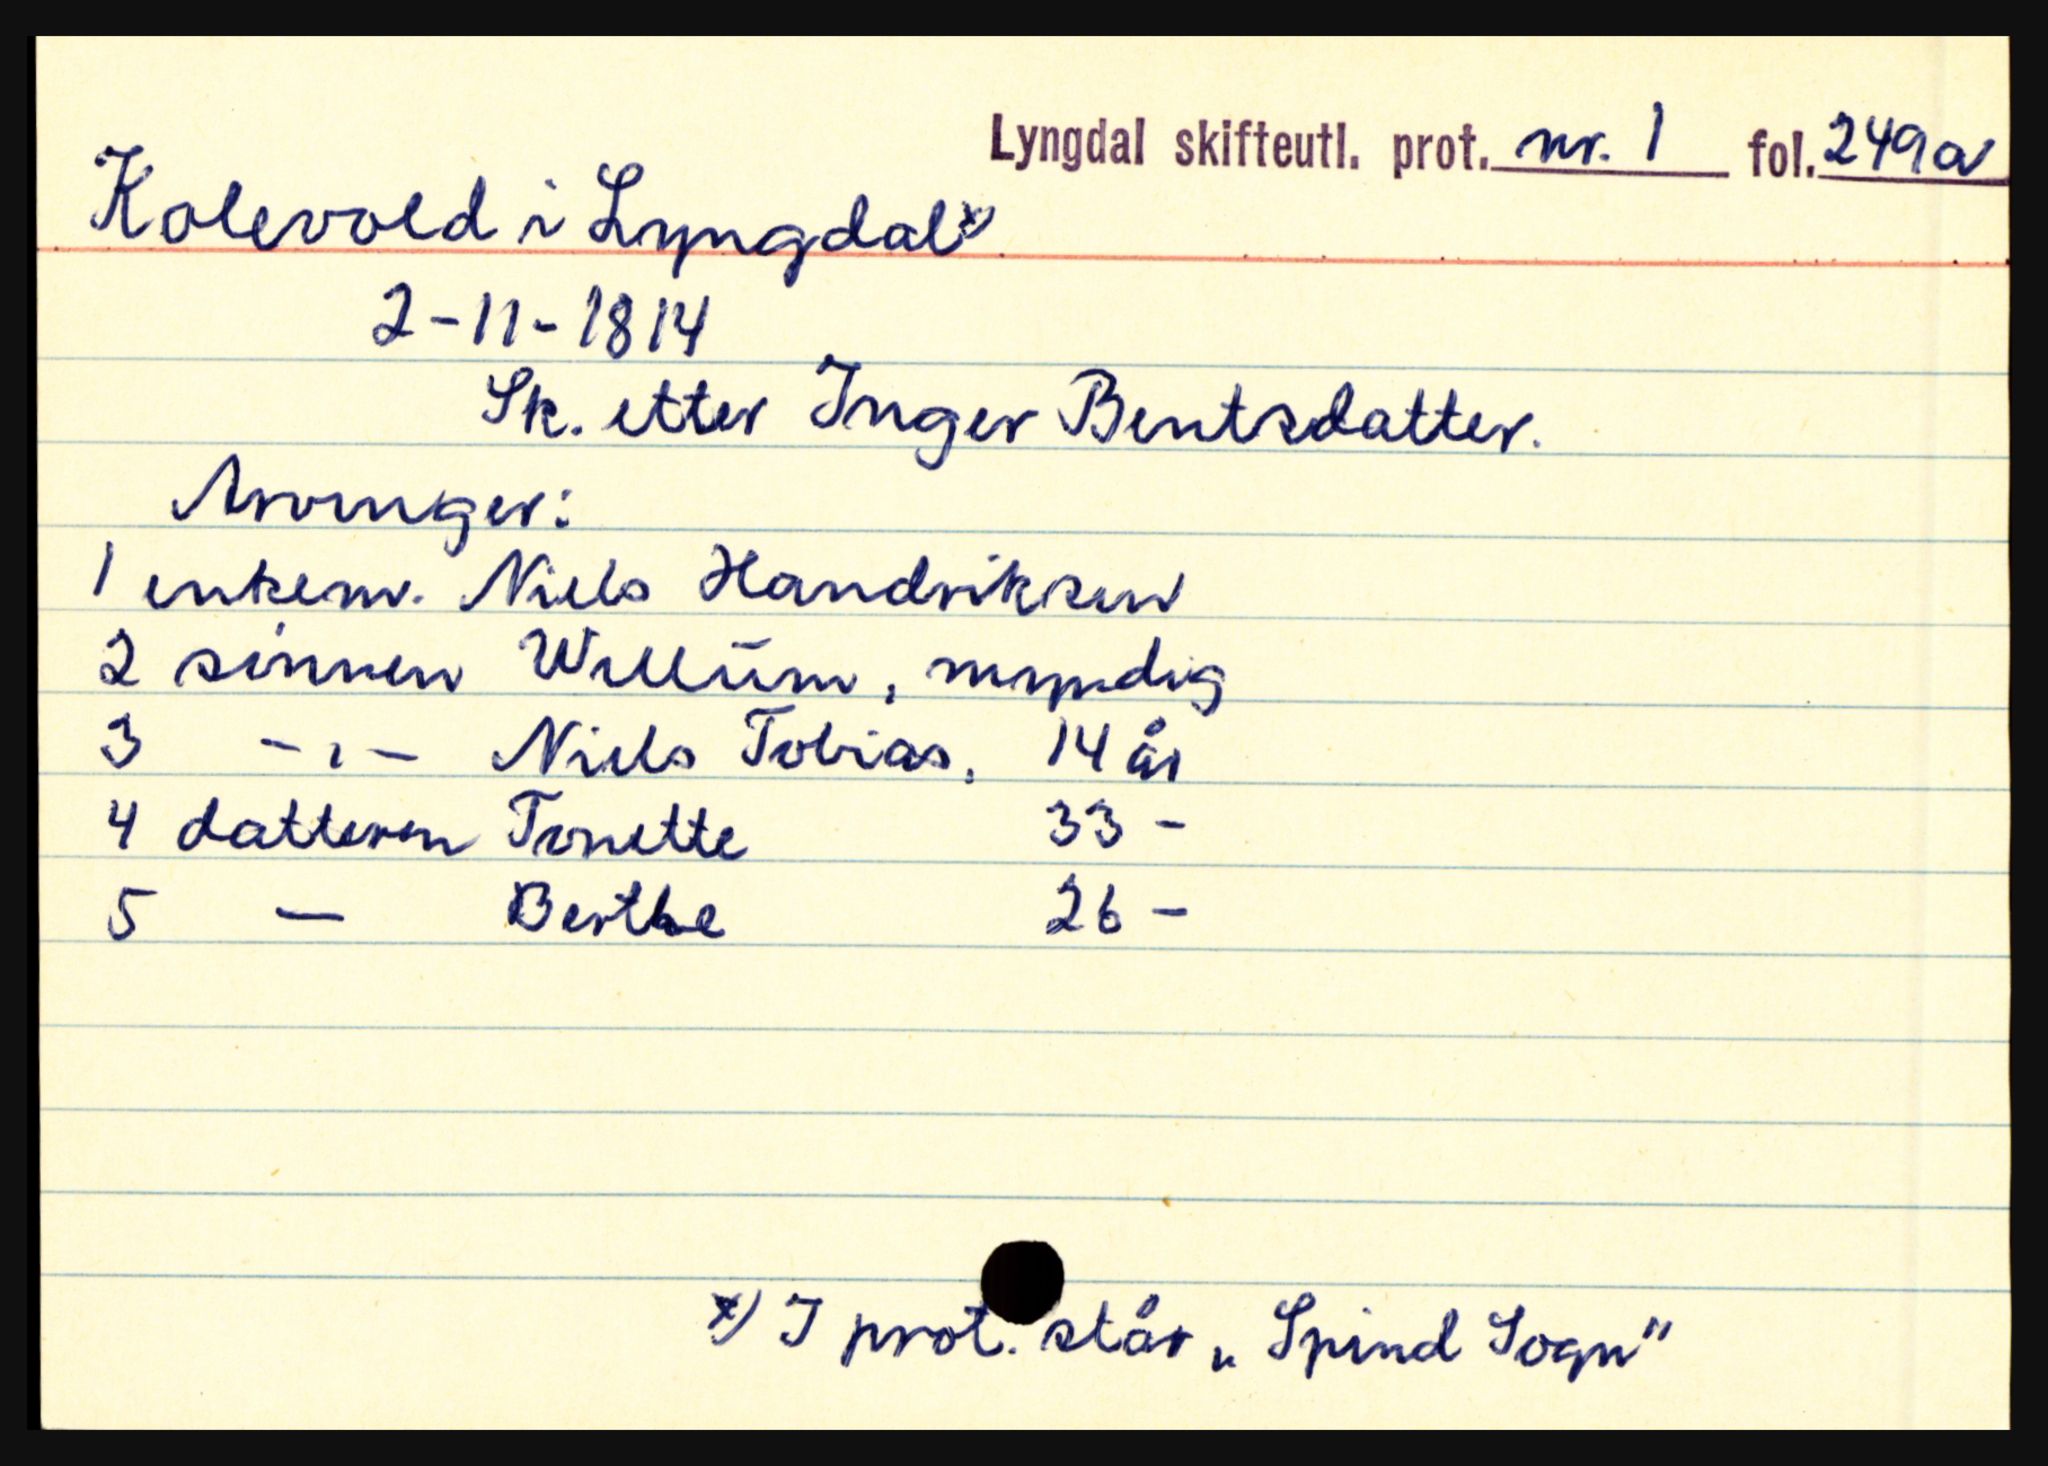 Lyngdal skifteutl. prot. nr. 1 fol. 249a
Kolevold i Lyngdal x)
2-11-1814
Sk. etter Inger Bentsdatter.
Arvinger:
1 enkem. Niels Handriksen
2 sønnen Willum, myndig
3 -"- Niels Tobias, 14 år
4 datteren Tonette 33 -
5 - Berthe 26 -
x) I prot. står „Spind Sogn"